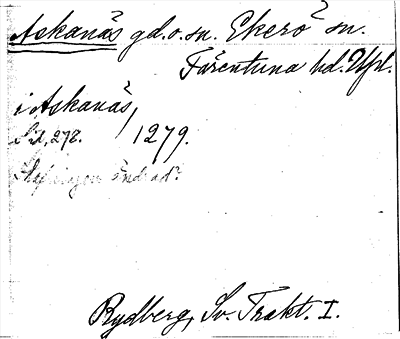 Askanäs gd. o. sn. Ekerö sn.
Färentuna hd. Upl.
i Askanäs,
S. 278. 1279.
ändrad?
Rydberg, Sv. Trakt. I.